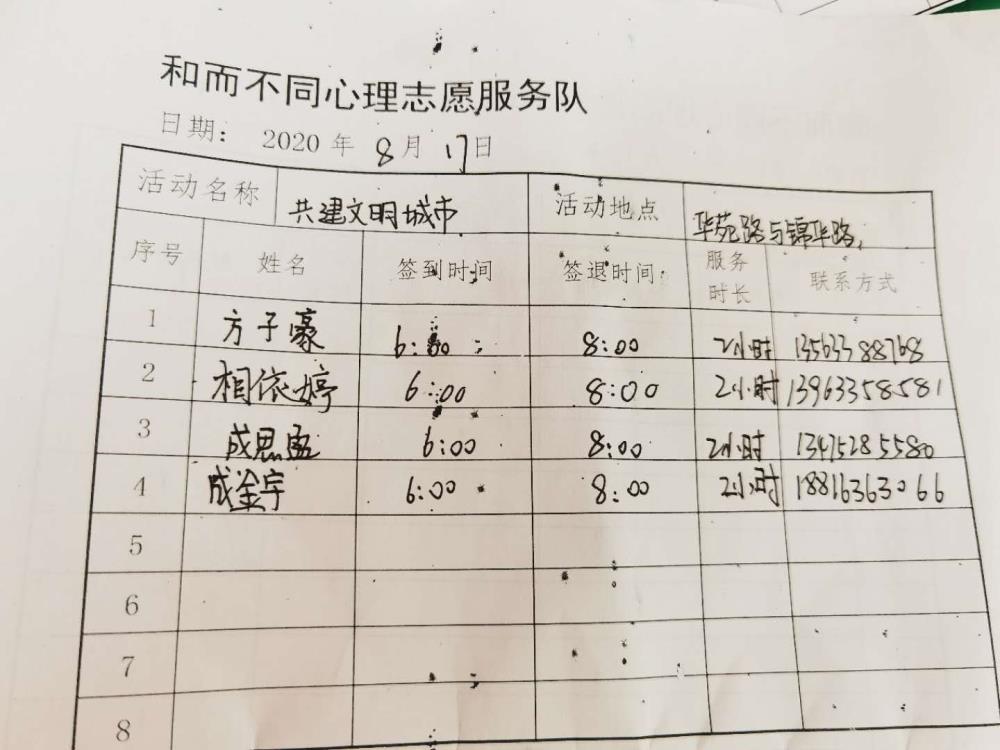 和而不同心理志愿服务队
日期： 2020 年 8 月 17 日
活动名称 共建文明城市 活动地点 华苑路与锦华路
序号 姓名 签到时间 签退时间 服务时长 联系方式
1 方子豪 6:00 8:00 2小时 13563388768
2 相依婷 6:00 8:00 2小时 13963358581
3 成思孟 6:00 8:00 2小时 13475285580
4 成金宇 6:00 8:00 2小时 18816363066
5
6
7
8